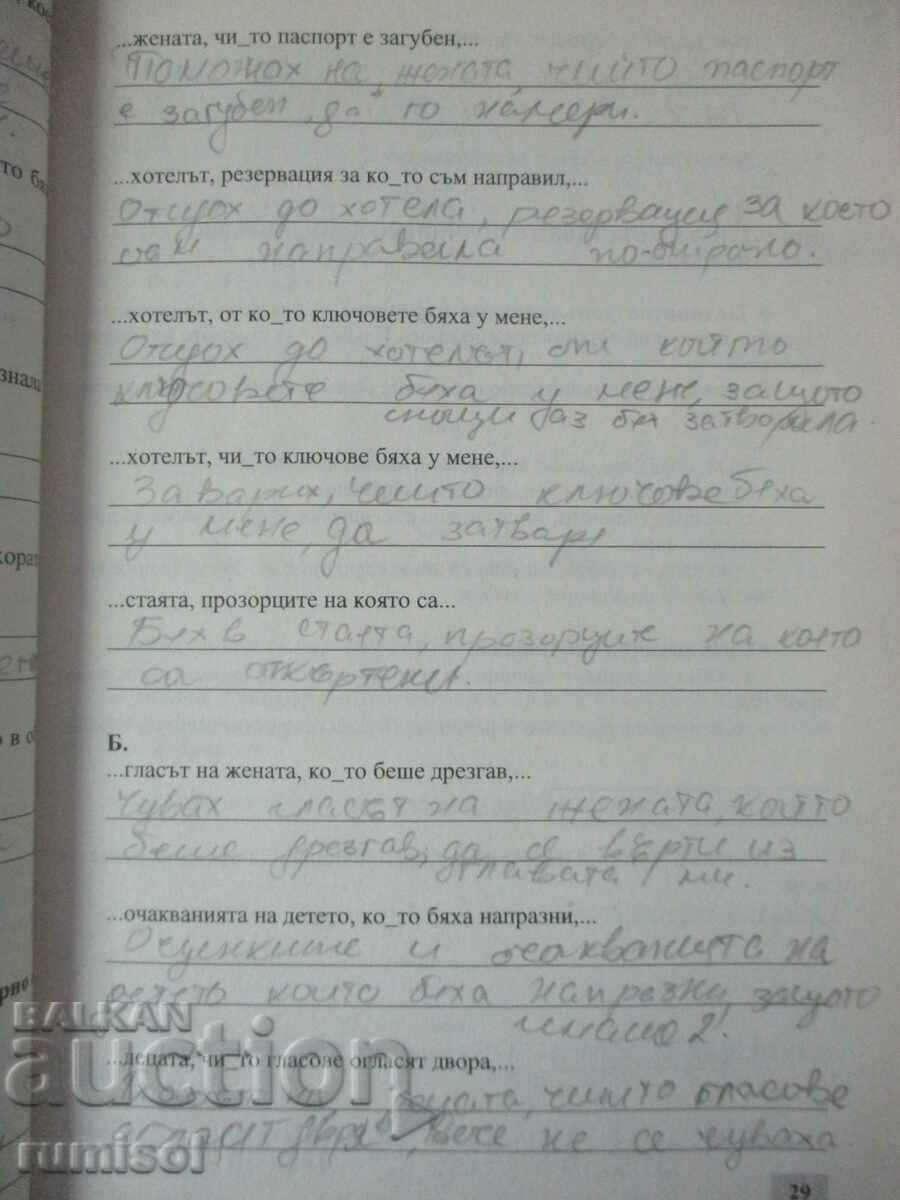 ...жената, чи_то паспорт е загубен,...
Помогнах на жената, чийто паспорт
е загубен, да го намери.
...хотелът, резервация за ко_то съм направил,...
Отидох до хотела, резервация за което
съм направила по-
...хотелът, от ко_то ключовете бяха у мене,...
Отидох до хотелът, от който
ключовете бяха у мене, защото
снощи аз бях затворила.
...хотелът, чи_то ключове бяха у мене,...
чиито ключове бяха
у мене, да затваря
...стаята, прозорците на която са...
Бях в стаята, прозорците на която
са откъртени.
Б.
...гласът на жената, ко_то беше дрезгав,...
Чувах гласът на жената, който
беше дрезгав, да се върти из
главата ми.
...очакванията на детето, ко_то бяха напразни,...
Оценките и очакванията на
детето които бяха напразни, защото
имаше 2!
...децата, чи_то гласове огласят двора,...
децата, чиито гласове
огласят двора, вече не се чуваха
29
знала
то бя
рно
BALKAN
auction
rumisol